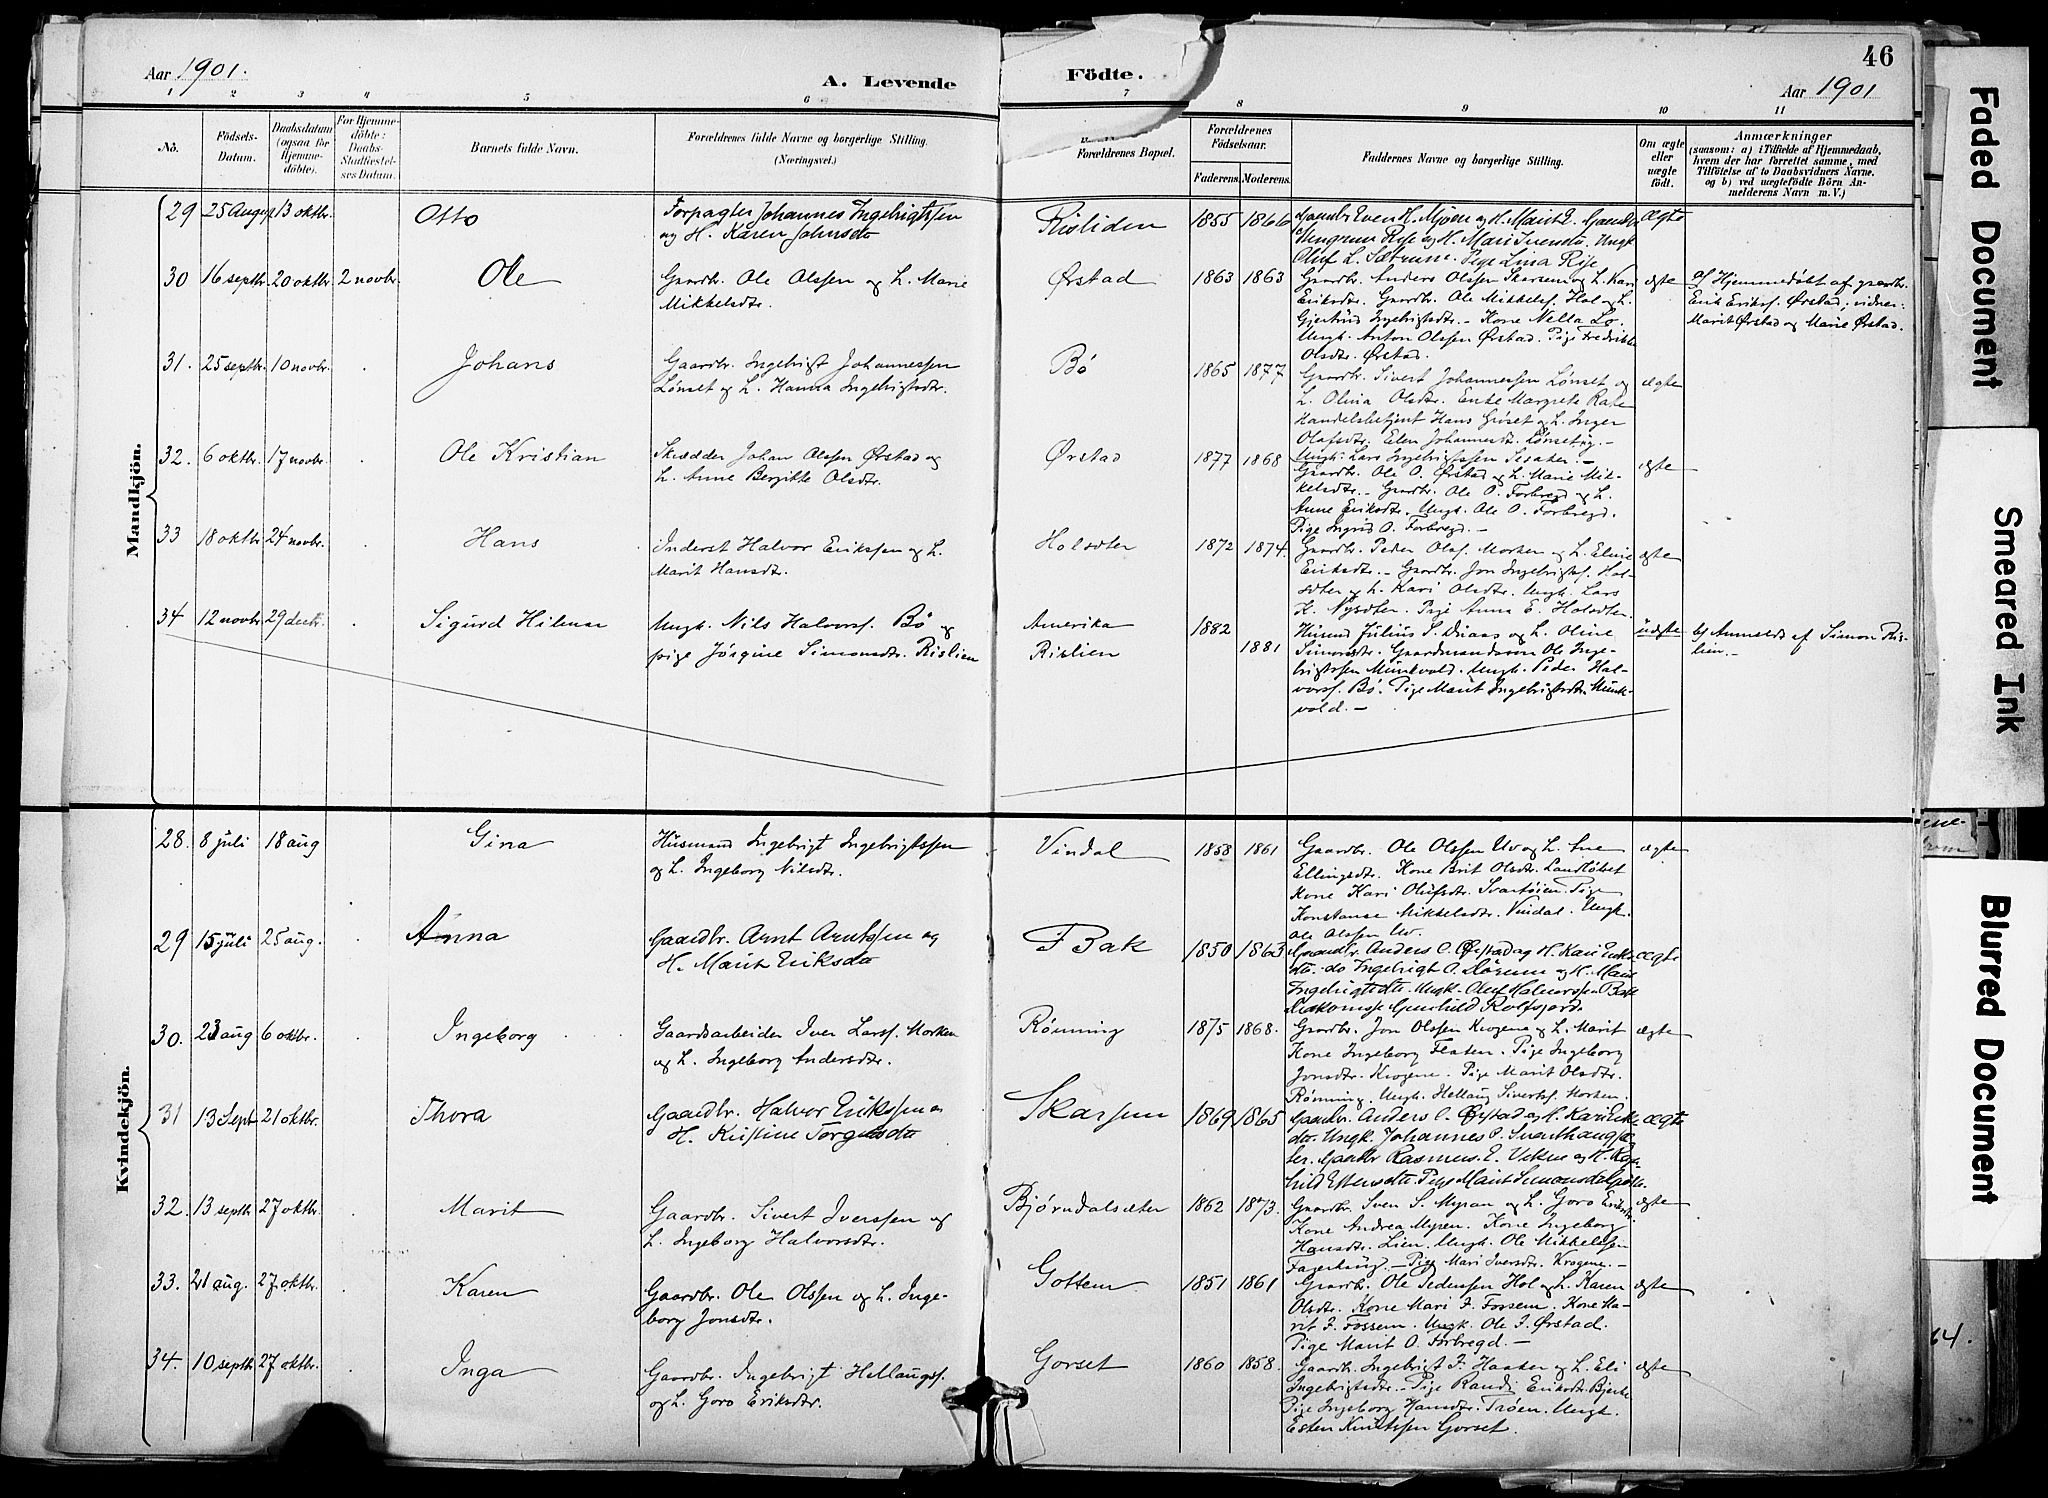 46
Aar 1901.
A. Levende
Födte.
Aar 1901
1 2 3 4 5 6 7 8 9 10 11
No.
Födsels-
Datum.
Daabsdatum
(ogsaa for
Hjemme-
döbte).
For Hjemme-
döbte:
Daabs-
Stadfæstel-
ses Datum.
Barnets fulde Navn.
Forældrenes fulde Navne og borgerlige Stilling.
(Næringsvei.)
Forældrenes Bopæl.
Forældrenes
Födselsaar.
Faderens. Moderens.
Faddernes Navne og borgerlige Stilling.
Om ægte
eller
uægte
født.
Anmærkninger
(saasom: a) i Tilfælde af Hjemmedaab,
hvem der har forrettet samme, med
Tilföielse af to Daabsvidners Navne.
og b) ved uægtefödte Börn An-
melderens Navn m. V.)
Mandkjön.
29 25 Aug 13 oktbr. Otto
Forpagter Johannes Ingebrigtssen
og H. Karen Johnsdtr
Risliden 1855 1866
Gaardbr Even H. Myren og H. Marit E.
Oluf L. Sætrum. Pige Lina Rise
ægte
30 16 septbr. 20 oktbr. 2 novbr. Ole
Gaardbr. Ole Olssen og h. Marie
Mikkelsdtr.
Ørstad 1863 1863
Gaardbr. Anders Olssen Skarsem og h. Kari
Eriksdtr. Gaardbr. Ole Mikkelsf. Hol og h.
Gjertrud Ingebrigtsdtr. – Kone Nella Lo.
Ungk. Anton Olssen Ørstad. Pige Fredrikke
Olsdtr. Ørstad.
ægte
a) Hjemmedøbt af gaardbr.
Erik Eriksf. Ørstad; vidner
Marit Ørstad og Marie Ørstad.
31. 25 septbr. 10 novbr. Johans
Gaardbr. Ingebrigt Johannessen
Lønset og h. Hanna Ingebrigtsdtr.
Bö 1865 1877
Gaardbr. Sivert Johannessen Lønset og
h. Olina Olsdtr. Enke Margrete
Handelsbetjent Hans Griset og h. Inger
Olafsdtr. Elen Johannesdtr. Lønset
Ungk. Lars Ingebrigtssen –
ægte
32. 6 oktbr. 17 novbr. Ole Kristian
Skrædder Johan Olssen Ørstad og
h. Anne Bergitte Olsdtr.
Ørstad 1877 1868
Gaardbr. Ole O. Ørstad og h. Marie Mik-
kelsdtr. – Gaardbr. Ole O. Forbregd og h.
Anne Eriksdtr. Ungk. Ole O. Forbregd.
Pige Ingrid O. Forbregd. –
ægte
33 18 oktbr. 24 novbr. Hans
Inderst Halvor Erikssen og h.
Marit Hansdtr.
Holsdter 1872 1874.
Gaardbr. Peder Olsf. Morken og h. Eline
Eriksdtr. – Gaardbr. Jon Ingebrigtsf. Hol-
sdter og h. Kari Olsdtr. Ungk. Lars
K. Nysdter. Pige Anna E. Holsdter.
ægte
34 12 novbr. 29 decbr. Sigurd Hilmar
Ungk. Nils Halvorsf. Bö og
pige Jörgine Simonsdtr. Rislien
Amerika 1882
Rislien 1881
Husmd Julius S. Draas og h. Oline
Simonsdtr. Gaardmandssøn Ole Inge-
brigtssen Munkvold. Ungk. Peder Hal-
vorsf. Bö. Pige Marit Ingebrigtsdtr. Munk-
vold. –
uægte
b) Anmeldt af Simon Ris-
lien. –
Kvindekjön.
28. 8 juli 18 aug Gina
Husmand Ingebrigt Ingebrigtssen
og h. Ingeborg Nilsdtr.
Vindal 1853 1861
Gaardbr. Ole Olssen Uv og h. Ane
Ellingsdtr. Kone Brit Olsdtr. Landløbet
Kone Kari Olufsdtr. Svartøien. Pige
Konstanse Mikkelsdtr. Vindal. Ungk.
Ole Olssen Uv.
ægte
29 15 juli 25 aug. Anna
Gaardbr. Arnt Arntssen og
H. Marit Eriksdtr
Bak 1850 1863
Gaardbr. Anders O. Ørstad og H. Kari Eriks-
dtr. do Ingebrigt O. Dørum og H. Marit
Ingebrigtsdtr. Ungk. Oluf Halvorssen Bak
Diakonisse Gunhild Rolfsjord.
ægte
30. 23 aug 6 oktbr. Ingeborg
Gaardsarbeider Iver Larsf. Morken
og h. Ingeborg Andersdtr.
Rönning 1875 1868.
Gaardbr. Jon Olssen Krogene og h. Marit
Kone Ingeborg Flaten. Pige Ingeborg
Jonsdtr. Krogene. Pige Marit Olsdtr.
Rönning. Ungk. Hellaug Sivertsf. Morken.
ægte
31 13 Sept 21 oktbr. Thora
Gaardbr. Halvor Erikssen og
H. Kristine Torgersdtr
Skarsem 1869 1865
Gaardbr Anders O. Ørstad og H. Kari Eriks-
dtr. Ungk. Johannes P.
Gaardbr Rasmus E. Viken og H.
Estensdtr. Pige Marit Simonsdtr
ægte
32. 13 septbr. 27 oktbr. Marit
Gaardbr. Sivert Iverssen og
h. Ingeborg Halvorsdtr.
Bjørndalsæter 1862 1873.
Gaardbr. Sven S. Myran og h. Goro Eriksdtr.
Kone Andrea Myren. Kone Ingeborg
Hansdtr. Lien. Ungk. Ole Mikkelssen
Fagerhaug. – Pige Mari Iversdtr. Krogene. –
ægte
33. 21 aug. 27 oktbr. Karen
Gaardbr. Ole Olssen og h. Inge-
borg Jonsdtr.
Gottem 1851 1861
Gaardbr. Ole Pederssen Hol og h. Karen
Olsdtr. Kone Mari J. Fossem. Kone Ma-
rit J. Fossem. Ungk Ole J. Ørstad.
Pige Marit O. Forbregd –
ægte
34. 10 septbr. 27 oktbr. Inga
Gaardbr. Ingebrigt Hellaugsf.
og h. Goro Eriksdtr.
Gorset 1860 1858.
Gaardbr. Ingebrigt J. Haaker og h. Eli
Ingebrigtsdtr. – Pige Randi Eriksdtr. Bjerke
Pige Ingeborg Hansdtr. Trøen. Ungk.
Esten Knutssen Gorset.
ægte
Faded Document
Smeared Ink
Blurred Document
64.